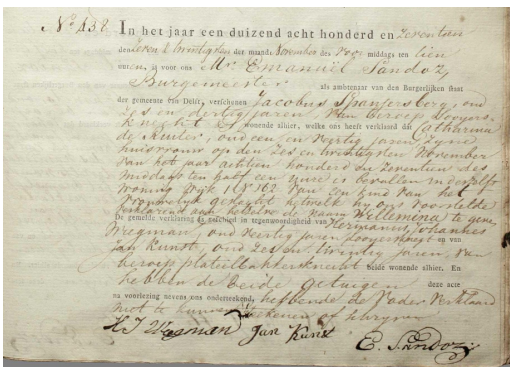 No 438. In het jaar een duizend acht honderd en zeventien
den zeven & twintigsten der maand November des voor middags ten tien
uren, is voor ons Mr. Emanuël Sandoz,
Burgemeester als ambtenaar van den Burgerlijken staat
der gemeente van Delft, verschenen Jacobus Spanjersberg, oud
zes en dertig jaren, van beroep
knegt wonende alhier, welke ons heeft verklaard dat Catharina
de Ruiter, oud een en veertig jaren, zyne
huisvrouw op den zes en twintigsten November
van het jaar achtien honderd en zeventien des
middags ten half een ure is bevallen in derzelver
woning Wijk 1 No 362 van een kind van het
vrouwelyk geslagt hetwelk hy ons voorstelde
verklarend aan hetzelve de naam Willemina te geven
De gemelde verklaring is geschied in tegenwoordigheid van Hermanus Johannes
Wegman, oud veertig jaren, looyersknegt en van
Jan Kunst, oud zes en twintig jaren, van
beroep plateelbakkersknecht beide wonende alhier. En
hebben de beide getuigen deze acte
na voorlezing nevens ons onderteekend, hebbende de Vader verklaard
niet te kunnen teekenen of schryven
H J Wegman Jan Kunst E. Sandoz